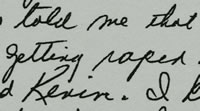 told me that
getting raped.
d Kevin. I